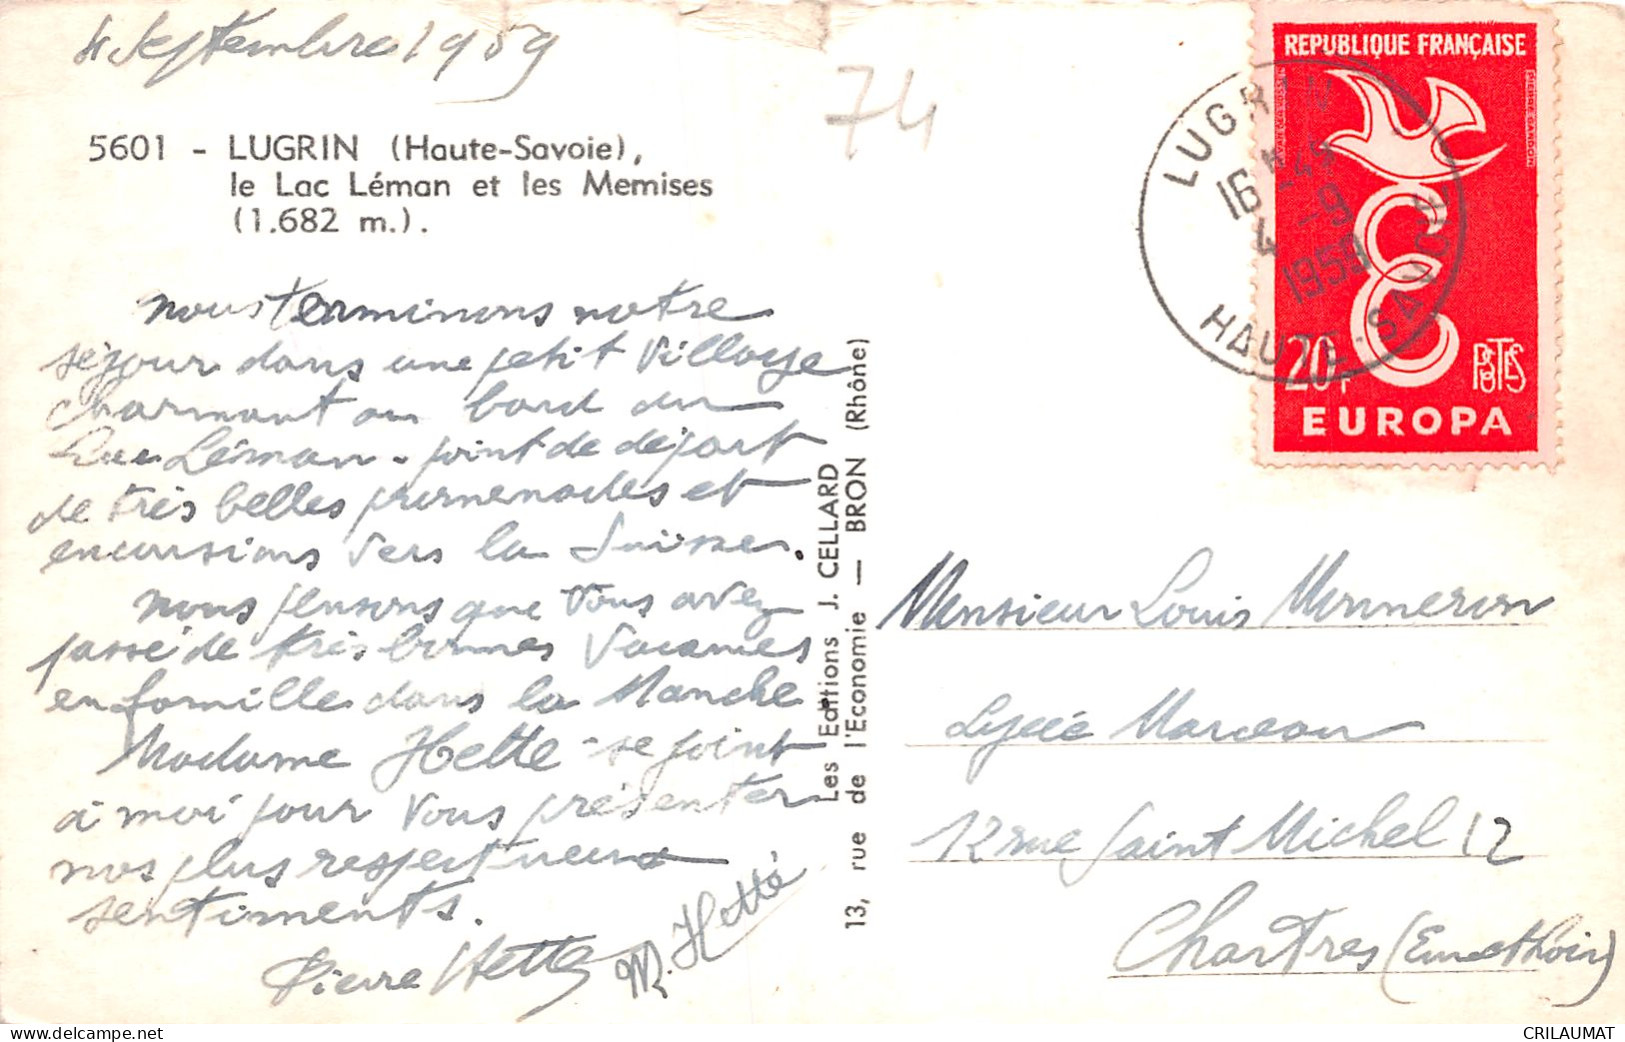 4 Septembre 1959
74
5601 - LUGRIN (Haute-Savoie),
le Lac Léman et les Memises
(1.682 m.).
nous terminons notre
séjour dans une petit village
charmant au bord du
Lac Léman - point de départ
de très belles promenades et
excursions vers la Suisse.
nous pensons que vous avez
passé de très bonnes vacances
en famille dans la Manche
Madame Hette se joint
à moi pour vous présenter
nos plus respectueux
sentiments.
Pierre Hette
M. Hette
Les Editions J. CELLARD
13, rue de l'Economie — BRON (Rhône)
REPUBLIQUE FRANÇAISE
PIERRE GANDON
20F
POSTES
EUROPA
LUGRIN
16H44
4 -9
1959
HAUTE-SAVOIE
Monsieur Louis Monneron
Lycée Marceau
12 rue Saint Michel 12
Chartres (Eure et Loir)
CRILAUMAT